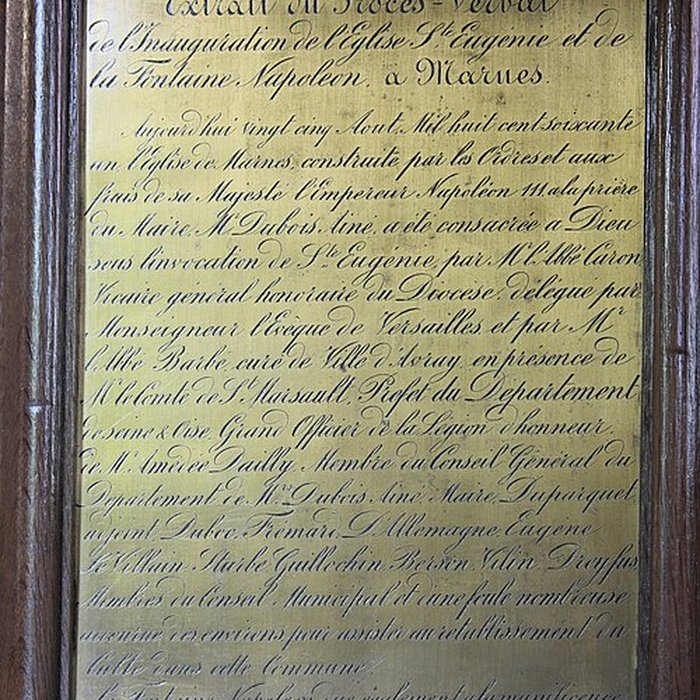 Extrait du Procès-Verbal
de l'Inauguration de l'Eglise Ste Eugénie et de
la Fontaine Napoléon, a Marnes.
Aujourd'hui vingt cinq Aout, Mil huit cent soixante
un, l'Eglise de Marnes, construite par les Ordres et aux
frais de sa Majesté l'Empereur Napoléon III a la prière
du Maire, Mr Dubois Ainé, a été consacrée a Dieu
sous l'invocation de Ste Eugénie, par Mr l'Abbé Caron,
Vicaire général honoraire du Diocese, délégué par
Monseigneur l'Evèque de Versailles, et par Mr
l'Abbé Barbé, curé de Ville d'Avray, en présence de
Mr le Comte de St Marsault, Préfet du Département
de Seine & Oise, Grand Officier de la Légion d'honneur,
de Mr Amédée Dailly, Membre du Conseil Général du
Département de Mrs Dubois Ainé Maire, Duparquet,
adjoint, Duboc, Frémard, D'Allemagne, Eugène
Le Villain, Sturbe, Guillochin, Berson, Vilin, Dreyfus,
Membres du Conseil Municipal et d'une foule nombreuse
accourue des environs pour assister au rétablissement du
Culte dans cette Commune.
la Fontaine Napoléon, due également a la munificence